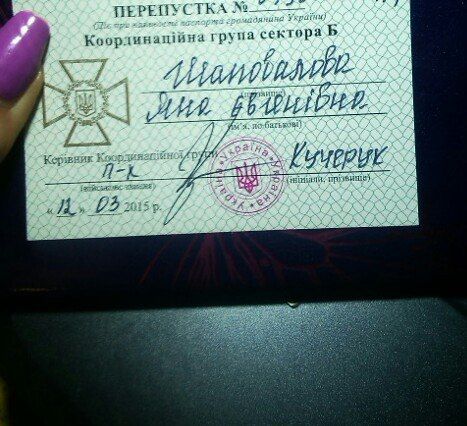 ПЕРЕПУСТКА №
(Діє при наявності паспорта громадянина України)
Координаційна група сектора Б
Шаповалова
(прізвище)
Яна Євгенівна
(ім'я, по батькові)
Керівник Координаційної групи
П-к Кучерук
(військове звання) (ініціали, прізвище)
« 12 » 03 2015 р.
Україна * Україна * Україна